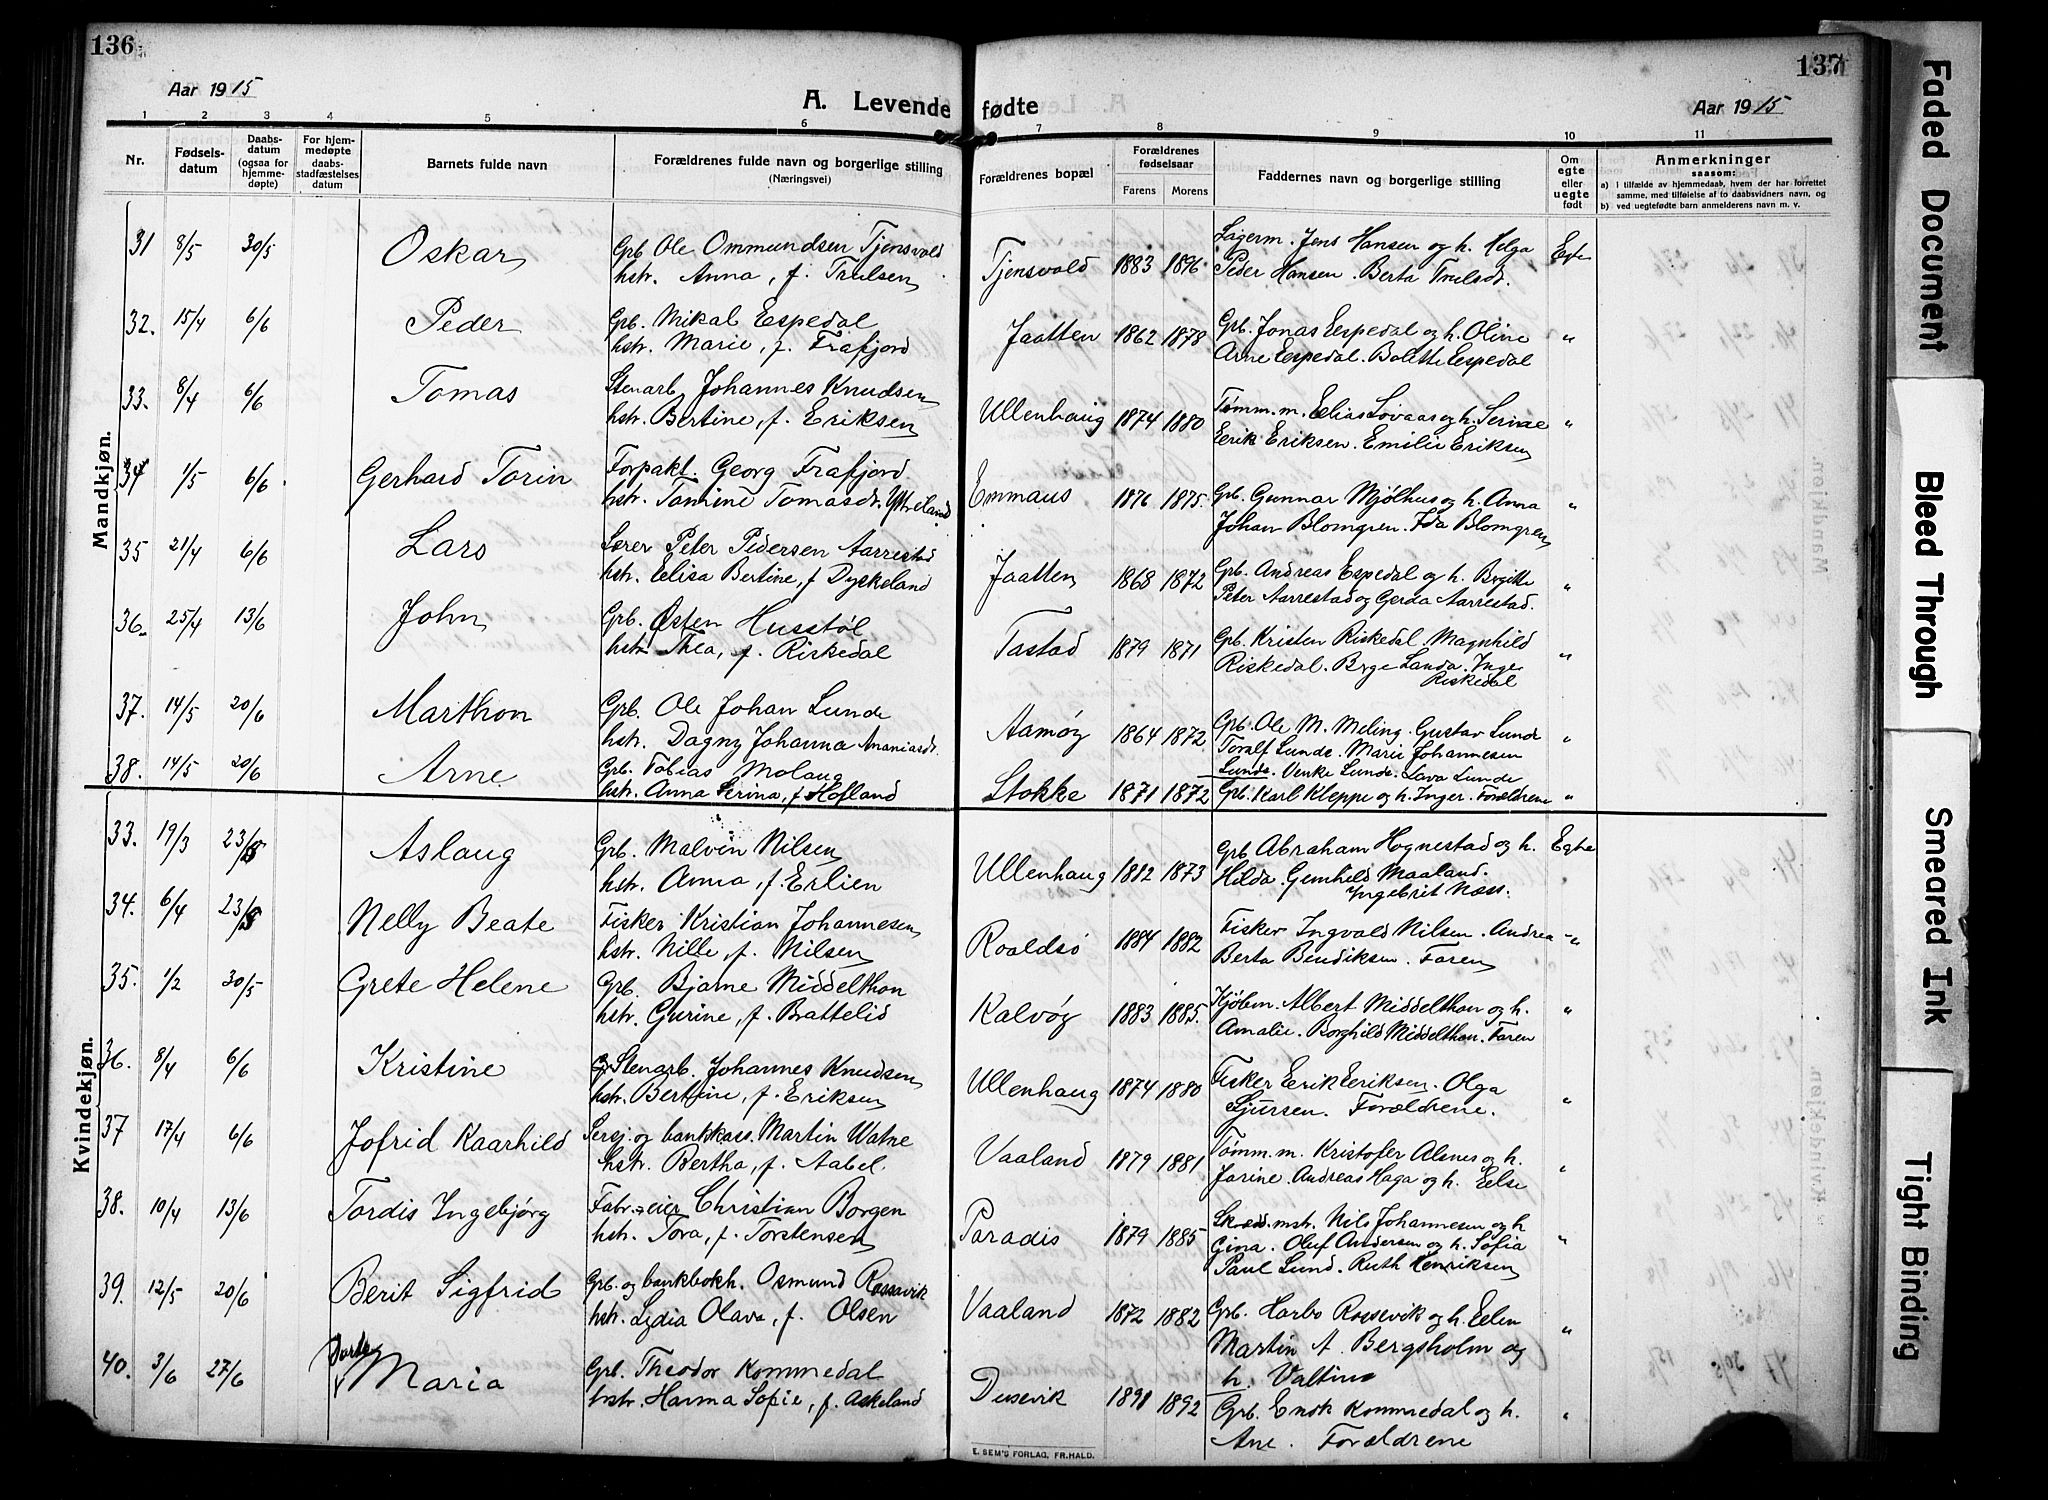 136
137
Aar 1915
A. Levende fødte
Aar 1915
1 2 3 4 5 6 7 8 9 10 11
Nr.
Fødsels-
datum
Daabs-
datum
(ogsaa for
hjemme-
døpte)
For hjem-
medøpte
daabs-
stadfæstelses
datum
Barnets fulde navn
Forældrenes fulde navn og borgerlige stilling
(Næringsvei)
Forældrenes bopæl
Forældrenes
fødselsaar
Farens Morens
Faddernes navn og borgerlige stilling
Om
egte
eller
uegte
født
Anmerkninger
saasom:
a) I tilfælde av hjemmedaab, hvem der har forrettet
samme, med tilføielse af to daabsvidners navn, og
b) ved uegtefødte barn anmelderens navn m. v.
Mandkjøn.
31 8/5 30/5 Oskar Grb. Ole Ommundsen Tjensvold Tjensvold 1883 1896 Lagerm. Jens Hansen og h. Helga Egte
hstr. Anna, f. Trulsen Peder Hansen. Berta Trulsdt.
32. 15/4 6/6 Peder Grb. Mikal Espedal Jaatten 1862 1878 Grb. Jonas Espedal og h. Oline "
hstr. Marie, f. Frafjord Arne Espedal. Bolitte Espedal
33. 8/4 6/6 Tomas Stenarb. Johannes Knudsen Ullenhaug 1874 1880 Tømm.m. Elias Lovaas og h. Serine "
hstr. Bertine, f. Eriksen Eerik Eriksen. Emilie Eriksen
34 1/5 6/6 Gerhard Torin Forpakt. Georg Frafjord Emmaus 1876 1875. Grb. Gunnar Mjølhus og h. Anna "
hstr. Tomine Tomasdt. Ytreland Johan Blomgren. Ida Blomgren
35 21/4 6/6 Lars Lærer Peter Pedersen Aarrestad Jaatten 1868 1872 Grb. Andreas Espedal og h. Brgitte "
hstr. Elisa Bertine, f Dyskeland Peter Aarrestad og Gerda Aarrestad.
36. 25/4 13/6 John Grb. Østen Husstøl Tastad 1879 1871 Grb. Kristen Riskedal Magnhild "
hstr Thea, f. Riskedal Riskedal. Brge Landa. Inge
Riskedal
37. 14/5 20/6 Marthon Grb. Ole Johan Lunde Aamøy 1864 1872 Grb. Ole M. Meling. Gustav Lunde "
hstr. Dagny Johanna Ananiasdt. Toralf Lunde. Marie Johannesen
Lunde. Venke Lunde. Lava Lunde
38. 14/5 20/6 Arne Grb. Tobias Molaug Stokke 1871 1872 Grb. Karl Kleppe og h. Inger. Forældrene "
hstr. Anna Serina, f Hofland
Kvindekjøn.
33. 19/3 23/5 Aslaug Grb. Malvin Nilsen Ullenhaug 1882 1873 Grb Abraham Hognestad og h. Egte
hstr. Anna, f. Erlien Hilda. Gunhild Maaland.
Ingebrit Næss.
34. 6/4 23/5 Nelly Beate Fisker Kristian Johannesen Roaldsø 1884 1882 Fisker Ingvald Nilsen. Andrea "
hstr. Nille, f. Nilsen Berta Bendiksen. Faren
35. 1/2 30/5 Grete Helene Grb. Bjarne Middelthon Kalvøy 1883 1885. Kjøbm. Albert Middelthon og h. "
hstr. Gurine, f. Brattelid Amalie. Borghild Middelthon. Faren
36. 8/4 6/6 Kristine Stenarb. Johannes Knudsen Ullenhaug 1874 1880 Fisker Eerik Eeriksen. Olga "
hstr. Bertine, f. Eriksen Sjursen. Forældrene.
37 17/4 6/6 Jofrid Kaarhild Sersj. og bankkass. Martin Watne Vaaland 1879 1881 Tømm. m. Kristofer Alsnes og h. "
hstr. Bertha, f. Aabel. Jarine. Andreas Haga og h. Eelse
38. 10/4 13/6 Tordis Ingebjørg Fabr.-eier Christian Borgen Paradis 1879 1885 Skrædd.mstr. Nils Johannesen og h "
hstr. Tora, f. Torstensen Gina. Oluf Andersen og h. Sofia
Paul Lund. Ruth Henriksen
39. 12/5 20/6 Berit Sigfrid Grb. og bankbokh. Osmund Rossavik Vaaland 1872 1882 Grb. Harbo Rossevik og h. Eelen "
hstr. Lydia Olava, f. Olsen Martin A. Bergsholm og
h. Valtine
40. 3/6 27/6 Dorte Maria Grb. Theodor Kommedal Dusevik 1891 1892 Grb. Enok Kommedal og h. "
hstr. Hanna Sofie, f. Askeland Ane. Forældrene
E. SEM'S FORLAG, FR.HALD.
Faded Document
Bleed Through
Smeared Ink
Tight Binding